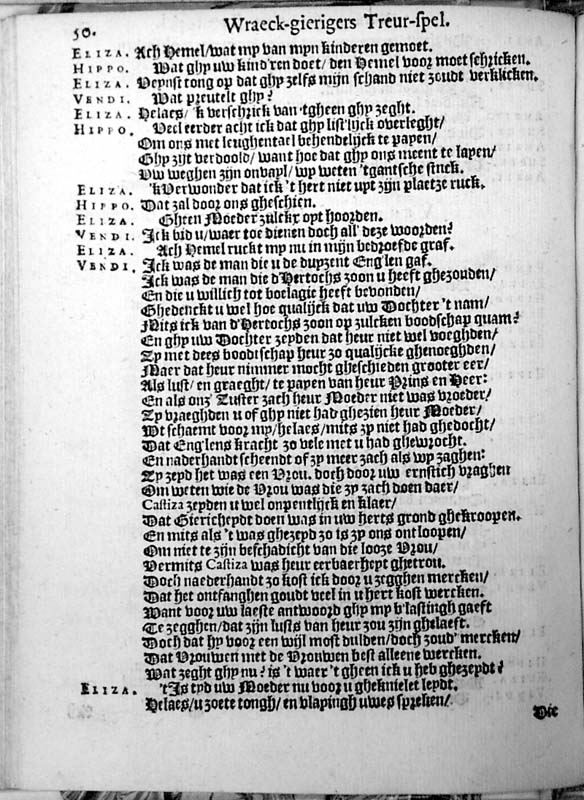 50.
Wraeck-gierigers Treur-spel.
ELIZA. Ach Hemel/wat my van mijn kinderen gemoet.
HIPPO. Wat ghy uw kind'ren doet/ den Hemel voor moet schricken.
ELIZA. Peynst tong op dat ghy zelfs mijn schand niet zoudt verklicken.
VENDI. Wat preutelt ghy?
ELIZA. Helaes/ 'k verschrick van 'tgheen ghy zeght.
HIPPO. Veel eerder acht ick dat ghy list'lijck overleght/
Om ons met leughentael behendelijck te payen/
Ghy zijt verdoold/ want hoe dat ghy ons meent te layen/
Uw weghen zijn onvayl/ wy weten 'tgantsche stuck.
ELIZA. 'k Verwonder dat ick 't hert niet uyt zijn plaetze ruck.
HIPPO. Dat zal door ons gheschien.
ELIZA. Gheen Moeder zulckx oyt hoorden.
VENDI. Ick bid u/ waer toe dienen doch all' deze woorden?
ELIZA. Ach Hemel ruckt my nu in mijn bedroefde graf.
VENDI. Ick was de man die u de duyzent Eng'len gaf.
Ick was de man die d'Hertochs zoon u heeft ghezouden/
En die u willich tot boelagie heeft bevonden/
Ghedenckt u wel hoe qualijck dat uw Dochter 't nam/
Mits ick van d'Hertochs zoon op zulcken boodschap quam?
En ghy uw Dochter zeyden dat heur niet wel voeghden/
Zy met dees boodtschap heur zo qualijcke ghenoeghden/
Maer dat heur nimmer mocht gheschieden grooter eer/
Als lust/ en graeght/ te payen van heur Prins en Heer:
En als onz' Zuster zach heur Moeder niet was vroeder/
Zy vraeghden u of ghy niet had ghezien heur Moeder/
Wt schaemt voor my/ helaes/ mits zy niet had ghedocht/
Dat Eng'lens kracht zo vele met u had ghewrocht.
En naderhandt scheendt of zy meer zach als wy zaghen:
Zy zeyd het was een Vrou. doch door uw ernstich vraghen
Om weten wie de Vrou was die zy zach doen daer/
Castiza zeyden u wel opentlijck en klaer/
Dat Giericheydt doen was in uw herts grond ghekroopen.
En mits als 't was ghezeyd zo is zy ons ontloopen/
Om niet te zijn beschadicht van die looze Vrou/
Vermits Castiza was heur eerbaerheyt ghetrou.
Doch naederhandt zo kost ick door u zegghen mercken/
Dat het ontfanghen goudt veel in u hert kost wercken.
Want voor uw laeste antwoord ghy my b'lastingh gaeft
Te zegghen/ dat zijn lusts van heur zou zijn ghelaeft.
Doch dat hy voor een wijl most dulden/ doch zoud' mercken/
Dat Vrouwen met de Vrouwen best alleene wercken.
Wat zeght ghy nu? is 't waer 't gheen ick u heb ghezeydt?
ELIZA. 't Is tyd uw Moeder nu voor u gheknielet leydt.
Helaes/ u zoete tongh/ en vlayingh uwes spreken/
Die